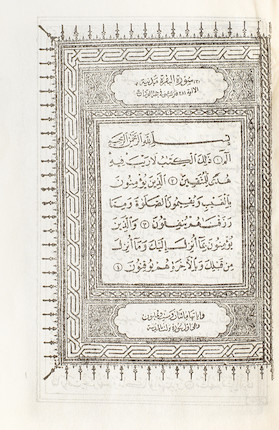 سورة البقرة مدنية
بسم الله الرحمن الرحيم
الٓمٓ ١ ذَٰلِكَ ٱلْكِتَٰبُ لَا رَيْبَ فِيهِ
هُدًى لِّلْمُتَّقِينَ ٢ ٱلَّذِينَ يُؤْمِنُونَ
بِٱلْغَيْبِ وَيُقِيمُونَ ٱلصَّلَوٰةَ وَمِمَّا
رَزَقْنَٰهُمْ يُنفِقُونَ ٣ وَٱلَّذِينَ
يُؤْمِنُونَ بِمَآ أُنزِلَ إِلَيْكَ وَمَآ أُنزِلَ
مِن قَبْلِكَ وَبِٱلْءَاخِرَةِ هُمْ يُوقِنُونَ ٤